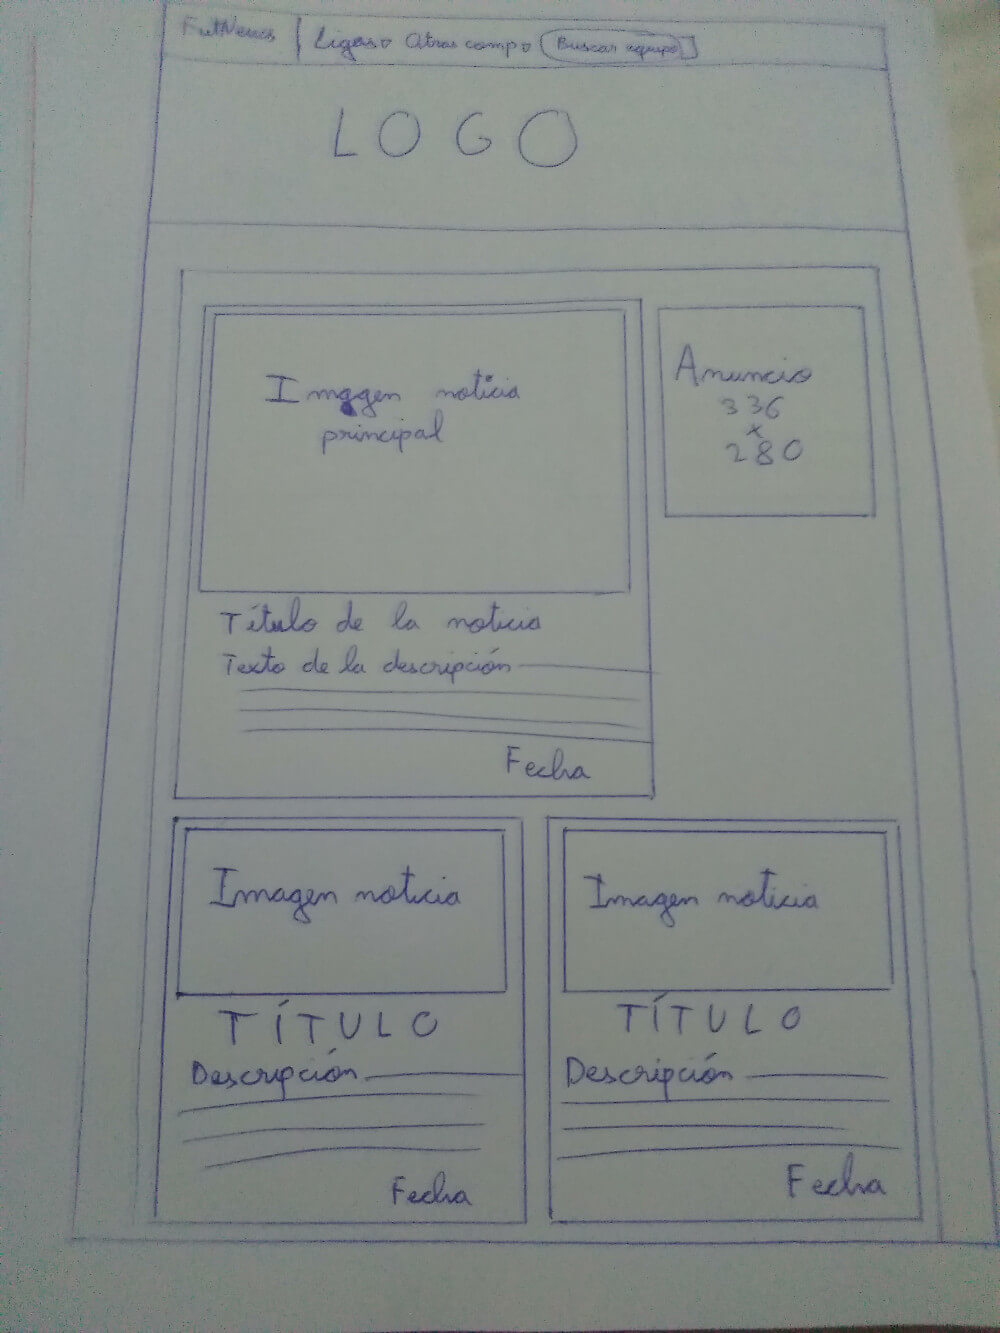 FutNews | Ligas Otros campo Buscar equipo
LOGO
Imagen noticia
principal
Anuncio
336
x
280
Título de la noticia
Texto de la descripción
Fecha
Imagen noticia
TÍTULO
Descripción
Fecha
Imagen noticia
TÍTULO
Descripción
Fecha